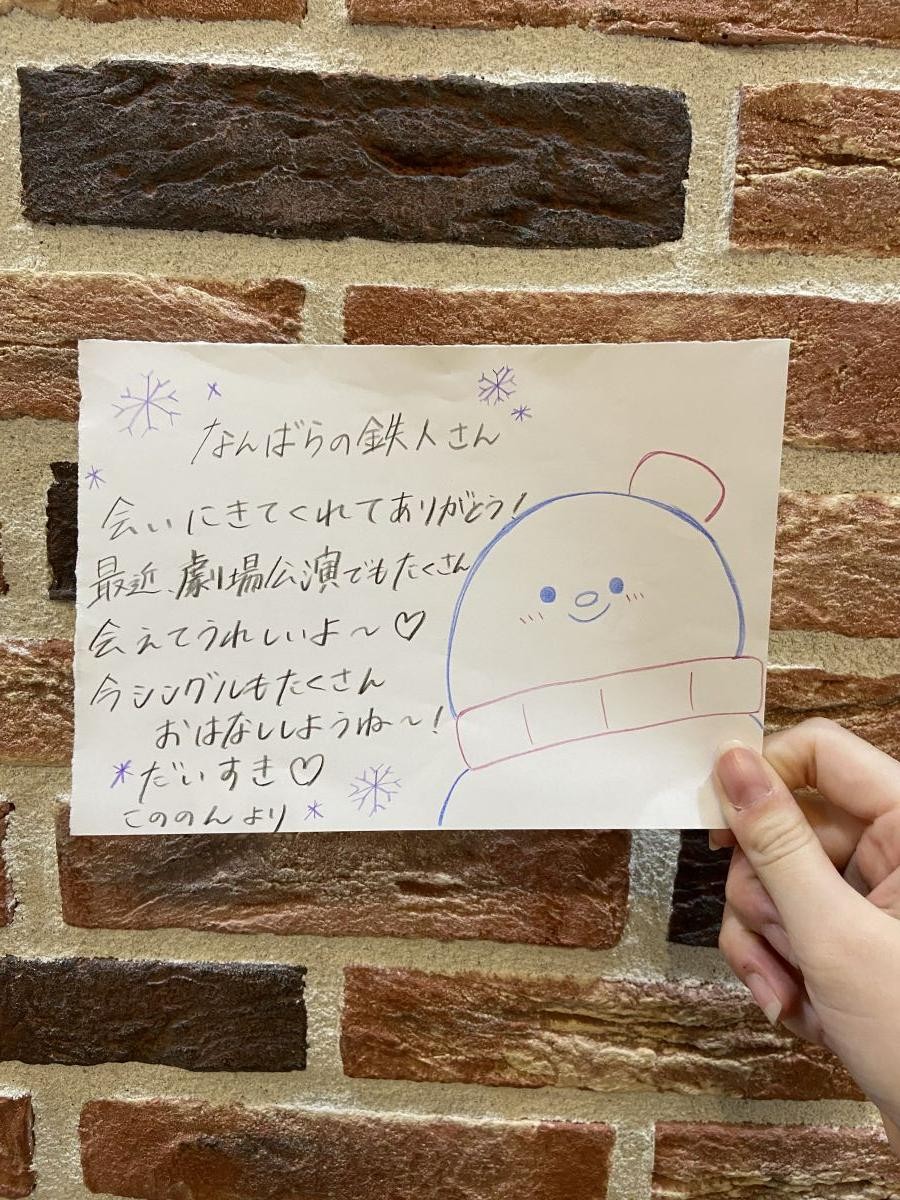 なんばらの鉄人さん
会いにきてくれてありがとう!
最近、劇場公演でもたくさん
会えてうれしいよ〜♡
今シングルもたくさん
おはなししようね〜!
だいすき♡
こののんより